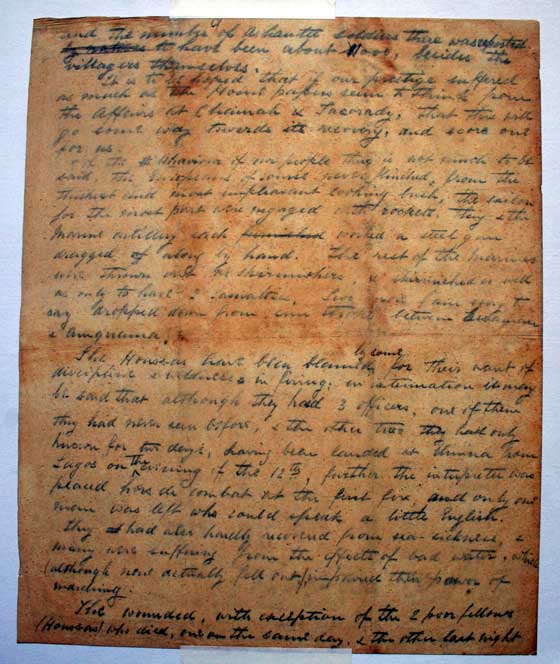 and the number of Ashantee soldiers there was reported
by natives to have been about 1100, besides the
villagers themselves.
It is to be hoped that if our prestige suffered
as much as the Home papers seem to think from
the affairs at Chamah & Tacorady, that this will
go some way towards its recovery, and score one
for us.
Of the behaviour of our people there is not much to be
said, the Europeans of course never flinched, from the
thickest and most unpleasant looking bush, the sailors
for the most part were engaged with rockets, they & the
Marine artillery each worked a steel gun
dragged along by hand. The rest of the Marines
were thrown out as skirmishers, & skirmished as well
as only to have 2 casualties. I am sorry to
say dropped down from between
& Amquana.
The Houssas have been blamed by some for their want of
discipline & wildness in firing; in extenuation it may
be said that although they had 3 officers, one of them
they had never seen before, & the other two they had only
known for two days, having been landed at Elmina from
Lagos on the evening of the 12th, further the interpreter were
placed hors de combat at the first fire, and only one
man was left who could speak a little English.
They had also hardly recovered from sea-sickness, &
many were suffering from the effects of bad water, which
(although none actually fell out) impaired their power of
marching.
The wounded, with exception of the 2 poor fellows
(Houssas) who died, one on the same day, & the other last night